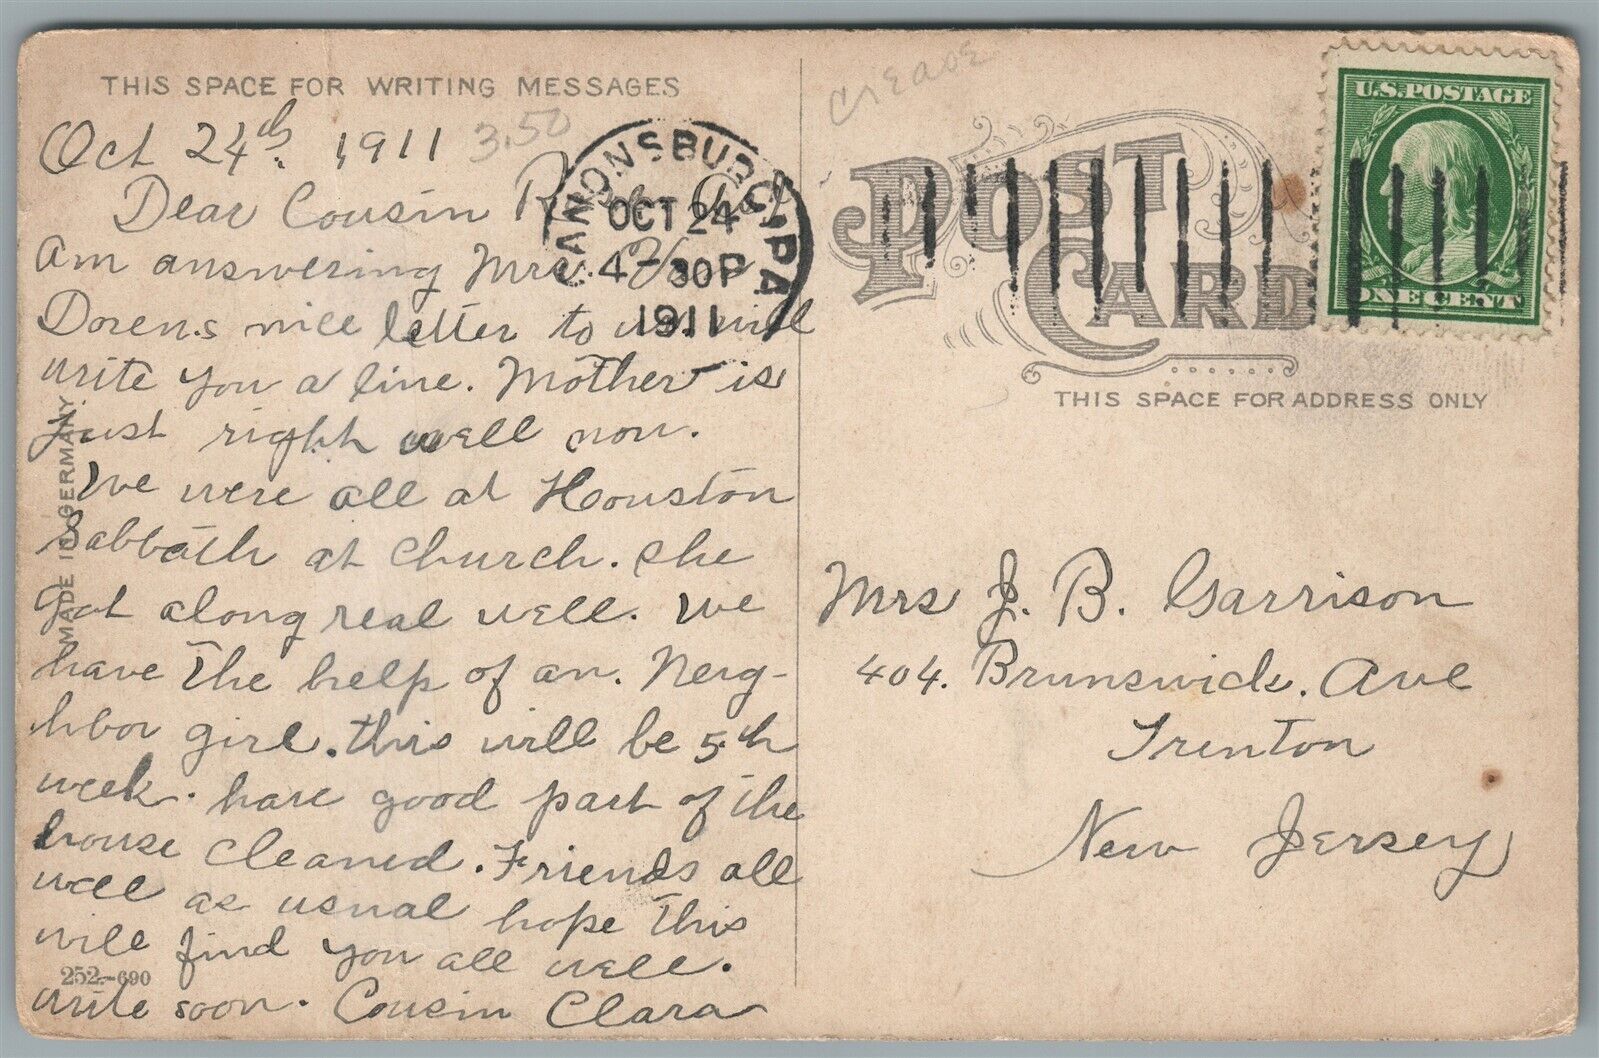 THIS SPACE FOR WRITING MESSAGES
Oct 24th. 1911
3.50
Dear Cousin
am answering Mrs.
Dorens nice letter to will
write you a line. Mother is
just right well now.
We were all at Houston
Sabbath at Church. She
got along real well. We
have the help of an. Neig-
hbor girl. this will be 5th
week. have good part of the
house cleaned. Friends all
well as usual hope this
will find you all well.
write soon. Cousin Clara
MADE IN GERMANY.
252.-690
CANONSBURG, PA
OCT 24
4-30P
1911
crease
U.S. POSTAGE
ONE CENT
POST CARD
THIS SPACE FOR ADDRESS ONLY
Mrs J. B. Garrison
404. Brunswick. Ave
Trenton
New Jersey